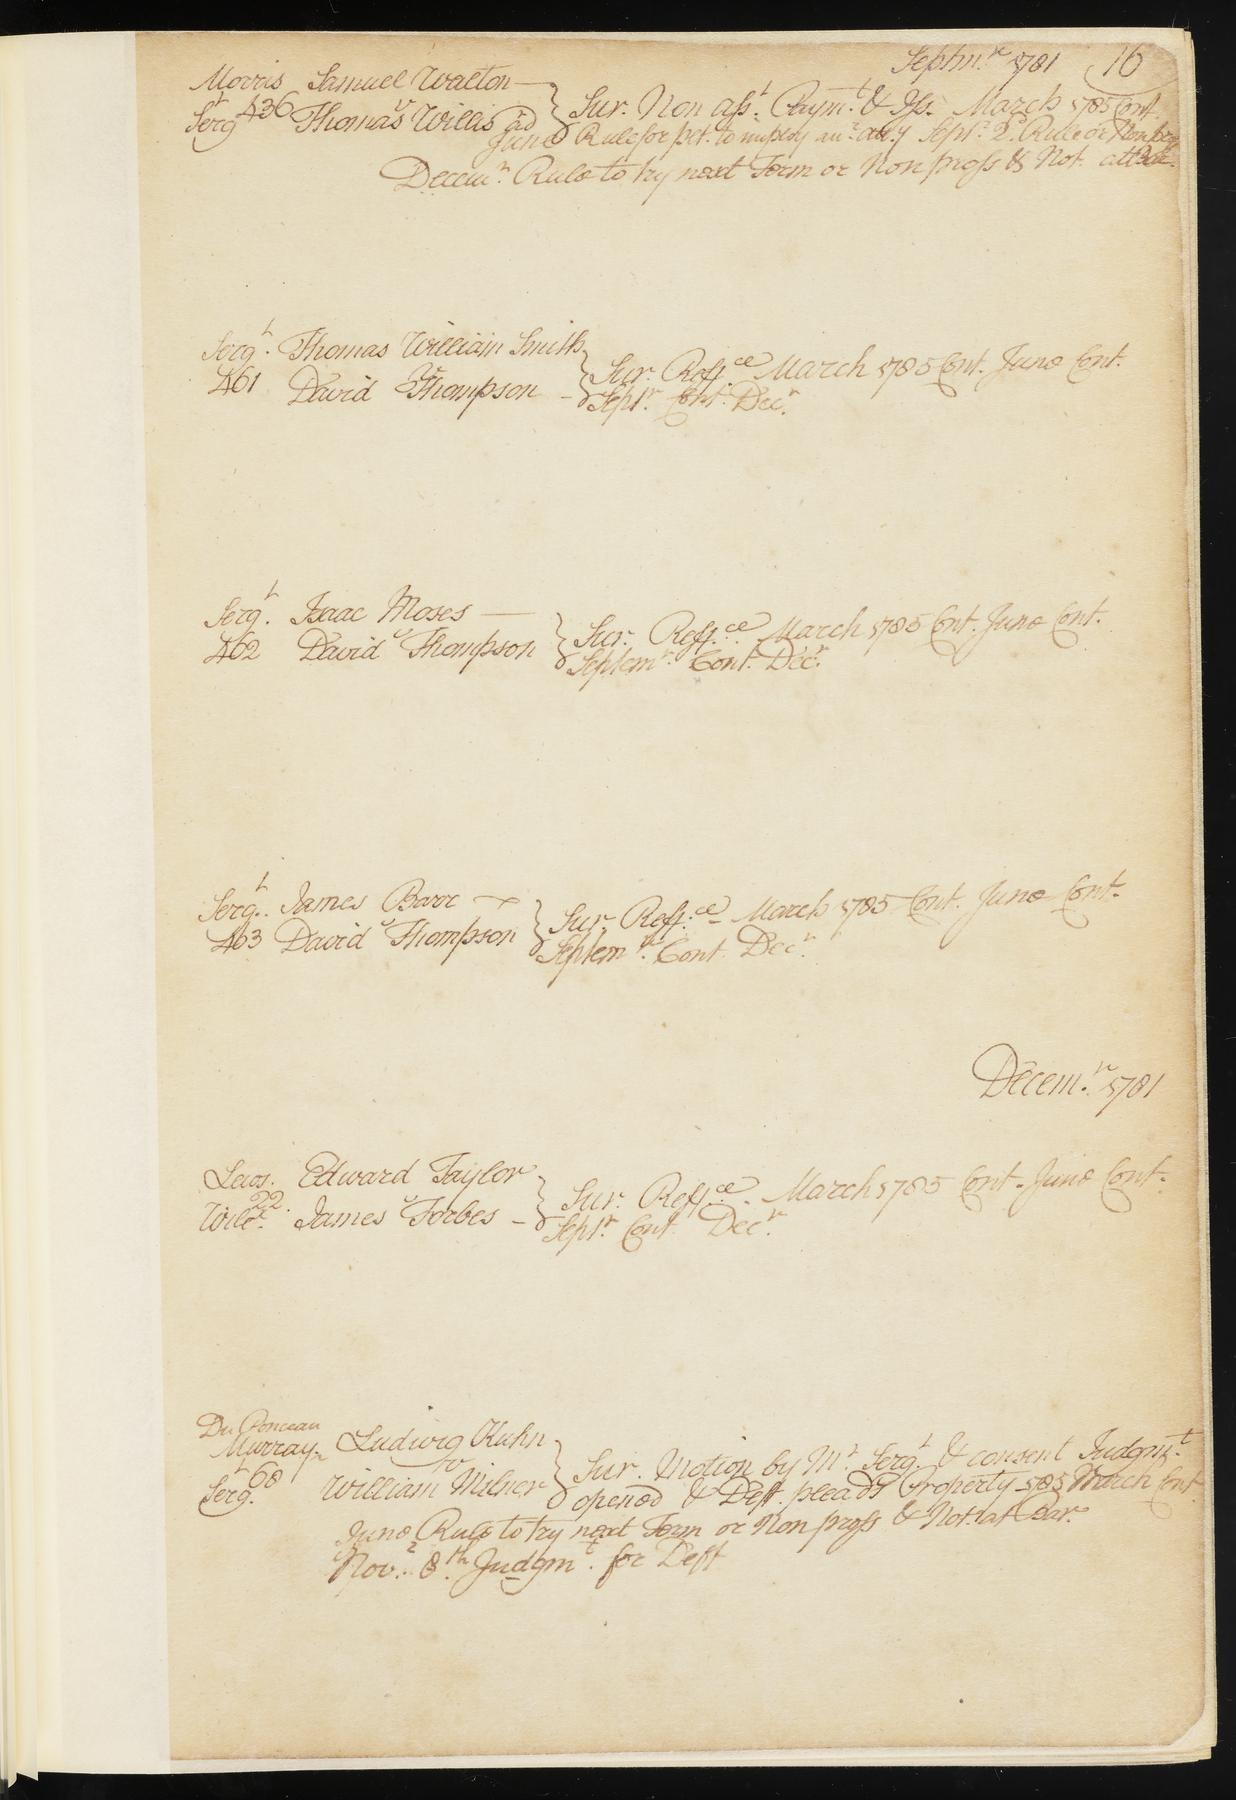 Septm.r 1781 16
Morris Samuel Walton
Serg.t 436 v Thomas Willis
Sur. Non ass.t Paym.t & Iss. March 1785 Cont.
June Rule for pl.t to Sept.r 2.d Rule or Non pros
Decem.r Rule to try next Term or Non pross & Not. att Bar.
Serg.t Thomas William Smith
461 v David Thompson
Sur. Reff.ce March 1785 Cont. June Cont.
Sept.r Cont. Dec.r
Serg.t Isaac Moses
462 v David Thompson
Sur. Reff.ce March 1785 Cont. June Cont.
Septem.r Cont. Dec.r
Serg.t James Barr
463 v David Thompson
Sur. Reff.ce March 1785 Cont. June Cont.
Septem.r Cont. Dec.r
Decem.r 1781
Lews. Edward Taylor
22. v
Wilc.x James Forbes
Sur. Reff.ce March 1785 Cont. June Cont.
Sept.r Cont. Dec.r
Du Ponceau
Murray Ludwig Kuhn
68 v
Serg.t William Milner
Sur. Motion by M.r Serg.t & consent Judgm.t
opened & Deft. pleads Property 1785 March Cont.
June Rule to try next Term or Non pross & Not. at Bar.
Nov.r 8.th Judgm.t for Deft